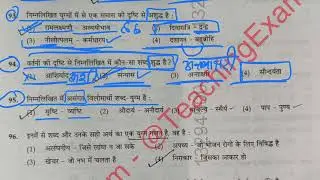 निम्नलिखित युग्मों में से एक समास की दृष्टि से अशुद्ध है ?
(1) रामलक्ष्मणौ - अव्ययीभाव (2) दिवारात्रि - द्वन्द्व
(3) नीलोत्पलम् - कर्मधारय (4) दशानन - बहुव्रीहि
94. वर्तनी की दृष्टि से निम्नलिखित में कौन-सा शब्द शुद्ध है ?
(2) सन्यास (3) (4) सौन्दर्यता
95. निम्नलिखित में असंगत विलोमार्थी शब्द-युग्म है :
(1) सृष्टि - व्यष्टि (2) औदार्य - अनौदार्य (3) - स्थैर्य (4) पाप - पुण्य
96. इनमें से शब्द और उनके सही अर्थ का एक युग्म गलत है, वह है :
(1) - जिसे लांघा न जा सके (2) अपथ्य - जो भोजन रोगी के लिए निषिद्ध है
(3) खेचर - जो नभ में चलता है (4) निराकार - जिसका आकार हो